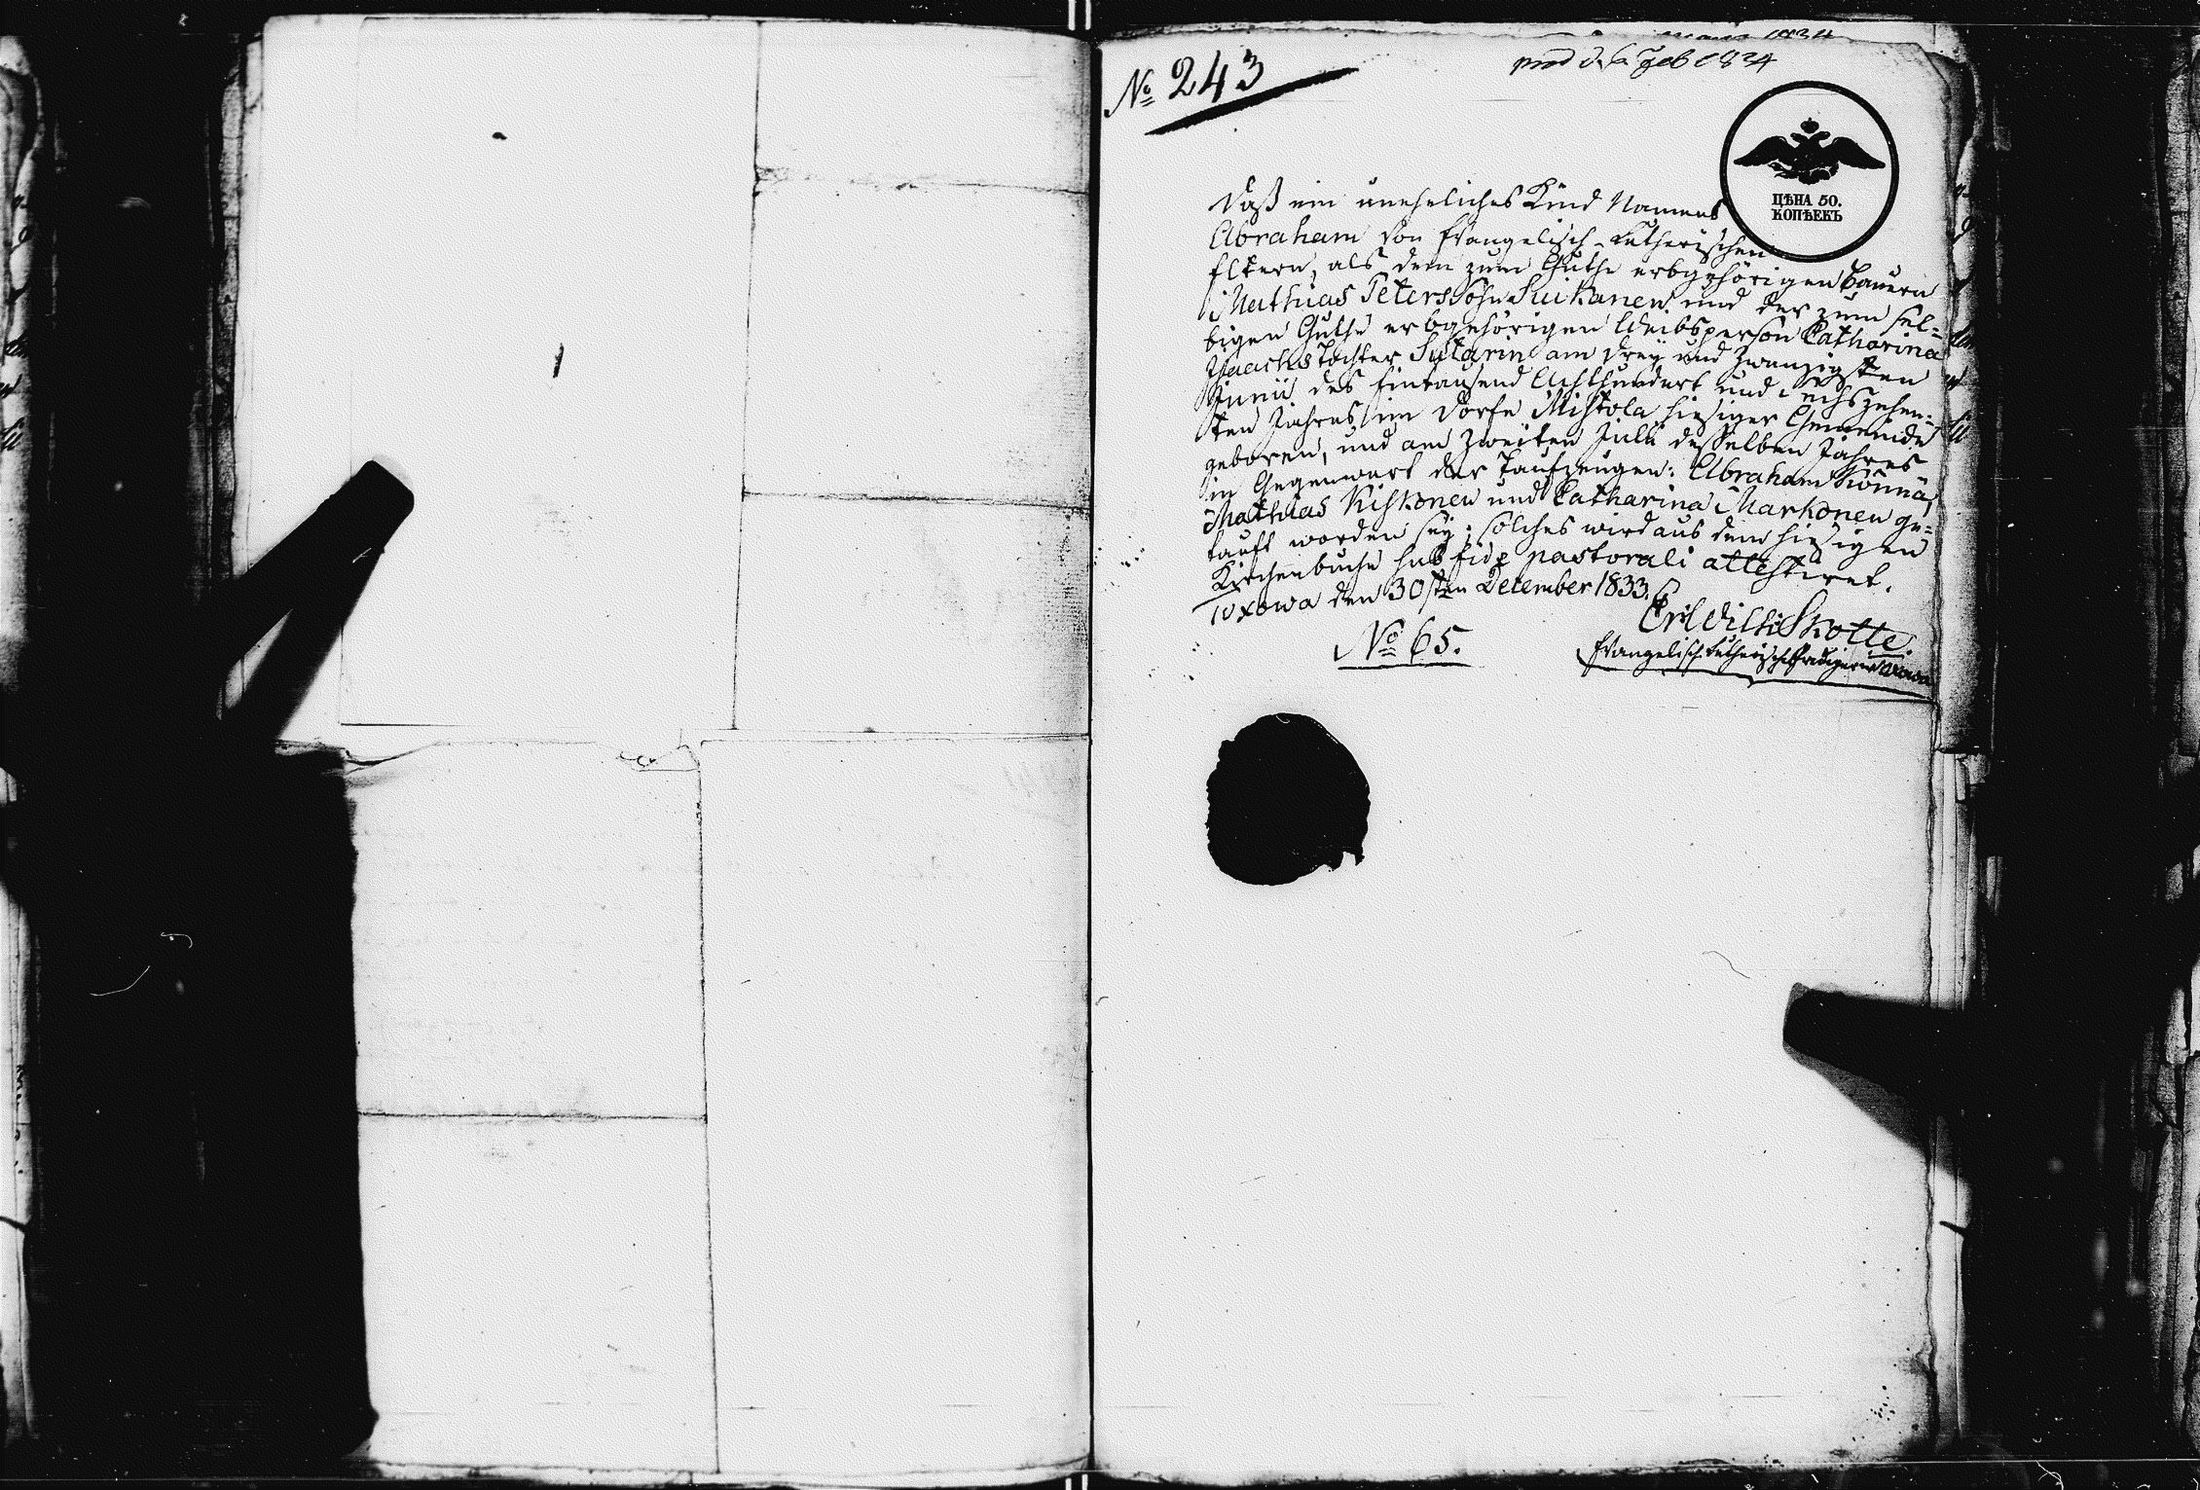 № 243
prod d. 6 Feb 1834
ЦѢНА 50.
КОПѢЕКЪ
Daß ein uneheliches Kind Namens
Abraham von Evangelisch-Lutherischen
Eltern, als dem zum Guthe erbgehörigen Bauern
Mathias Peters Sohn Suikanen und der zum sel-
bigen Guthe erbgehörigen Weibsperson Catharina
Isaachs Tochter Sutarin am drey und zwanzigsten
Junii des Eintausend Achthundert und sechszehen-
ten Jahres im Dorfe Mistola hiesiger Gemeinde
geboren, und am zweiten Julii desselben Jahres
in Gegenwart der Taufzeugen: Abraham Könnä,
Mathias Kiskonen und Catharina Markonen ge-
tauft worden sey; solches wird aus dem hiesigen
Kirchenbuche sub fide pastorali attestiret.
Toxowa den 30sten December 1833.
Skotte.
№ 65.
Evangelisch Lutherischer Prediger in Toxowa